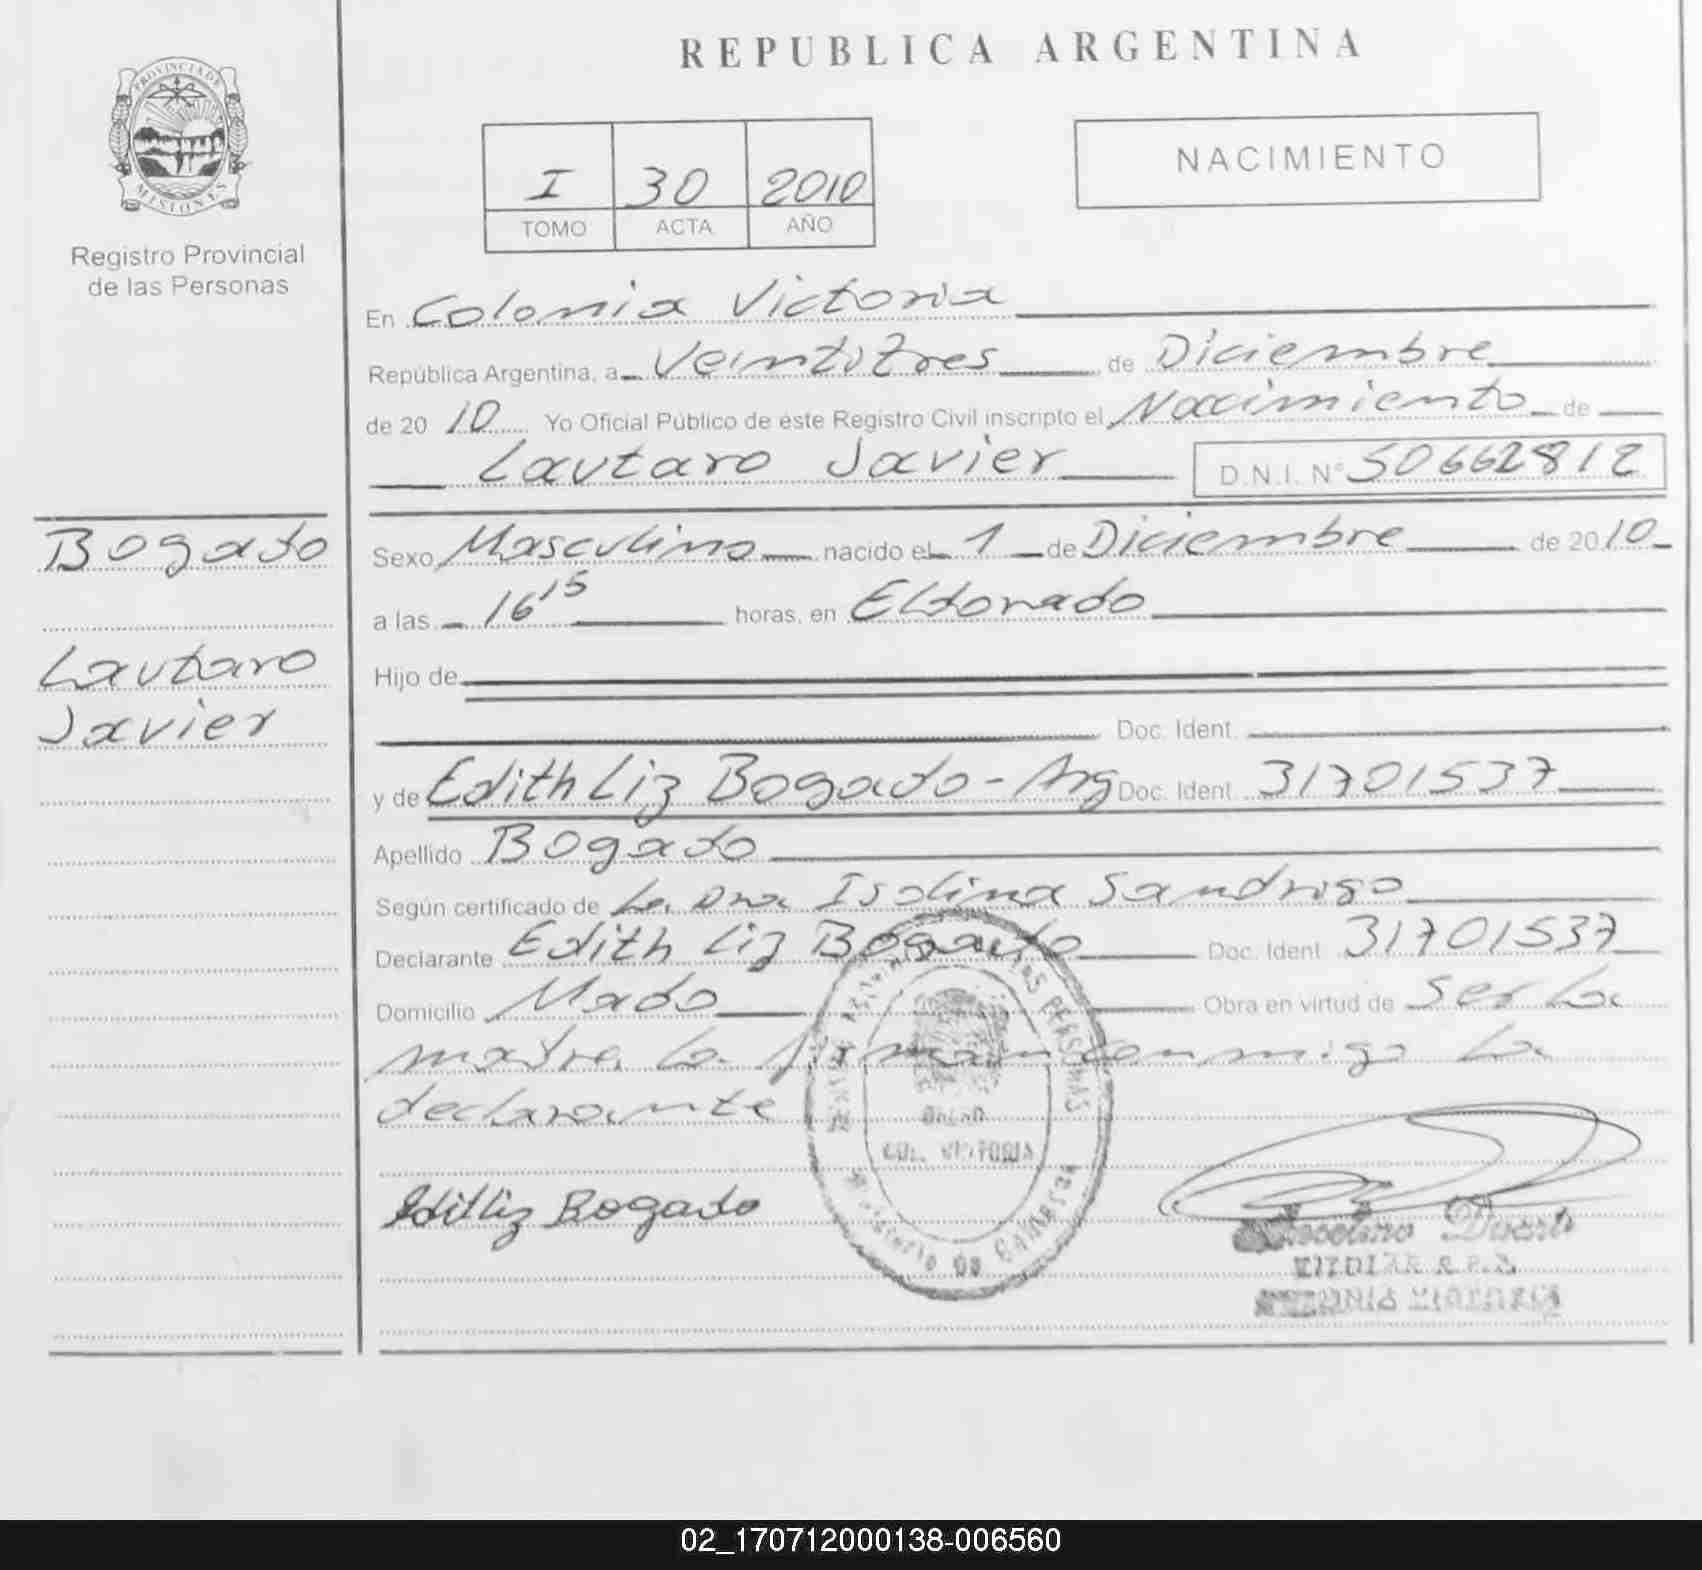 REPUBLICA ARGENTINA
PROVINCIA DE
MISIONES
Registro Provincial
de las Personas
I 30 2010
TOMO ACTA AÑO
NACIMIENTO
En Colonia Victoria
República Argentina, a Veintitres de Diciembre
de 2010 Yo Oficial Público de éste Registro Civil inscripto el Nacimiento de
Lautaro Javier D.N.I. N° 50662812
Bogado
Lautaro
Javier
Sexo Masculino nacido el 1 de Diciembre de 2010
a las 16 15 horas, en Eldorado
Hijo de
Doc. Ident.
y de Edith Liz Bogado - Arg Doc. Ident. 31701537
Apellido Bogado
Según certificado de La Dra Isolina Sandrigo
Declarante Edith Liz Bogado Doc. Ident. 31701537
Domicilio Mado Obra en virtud de Ser La
madre, La firma conmigo La
declarante
COL. VICTORIA
Ministerio de Gobierno
Edith Liz Bogado
TITULAR R.P.P.
COLONIA VICTORIA
02_170712000138-006560